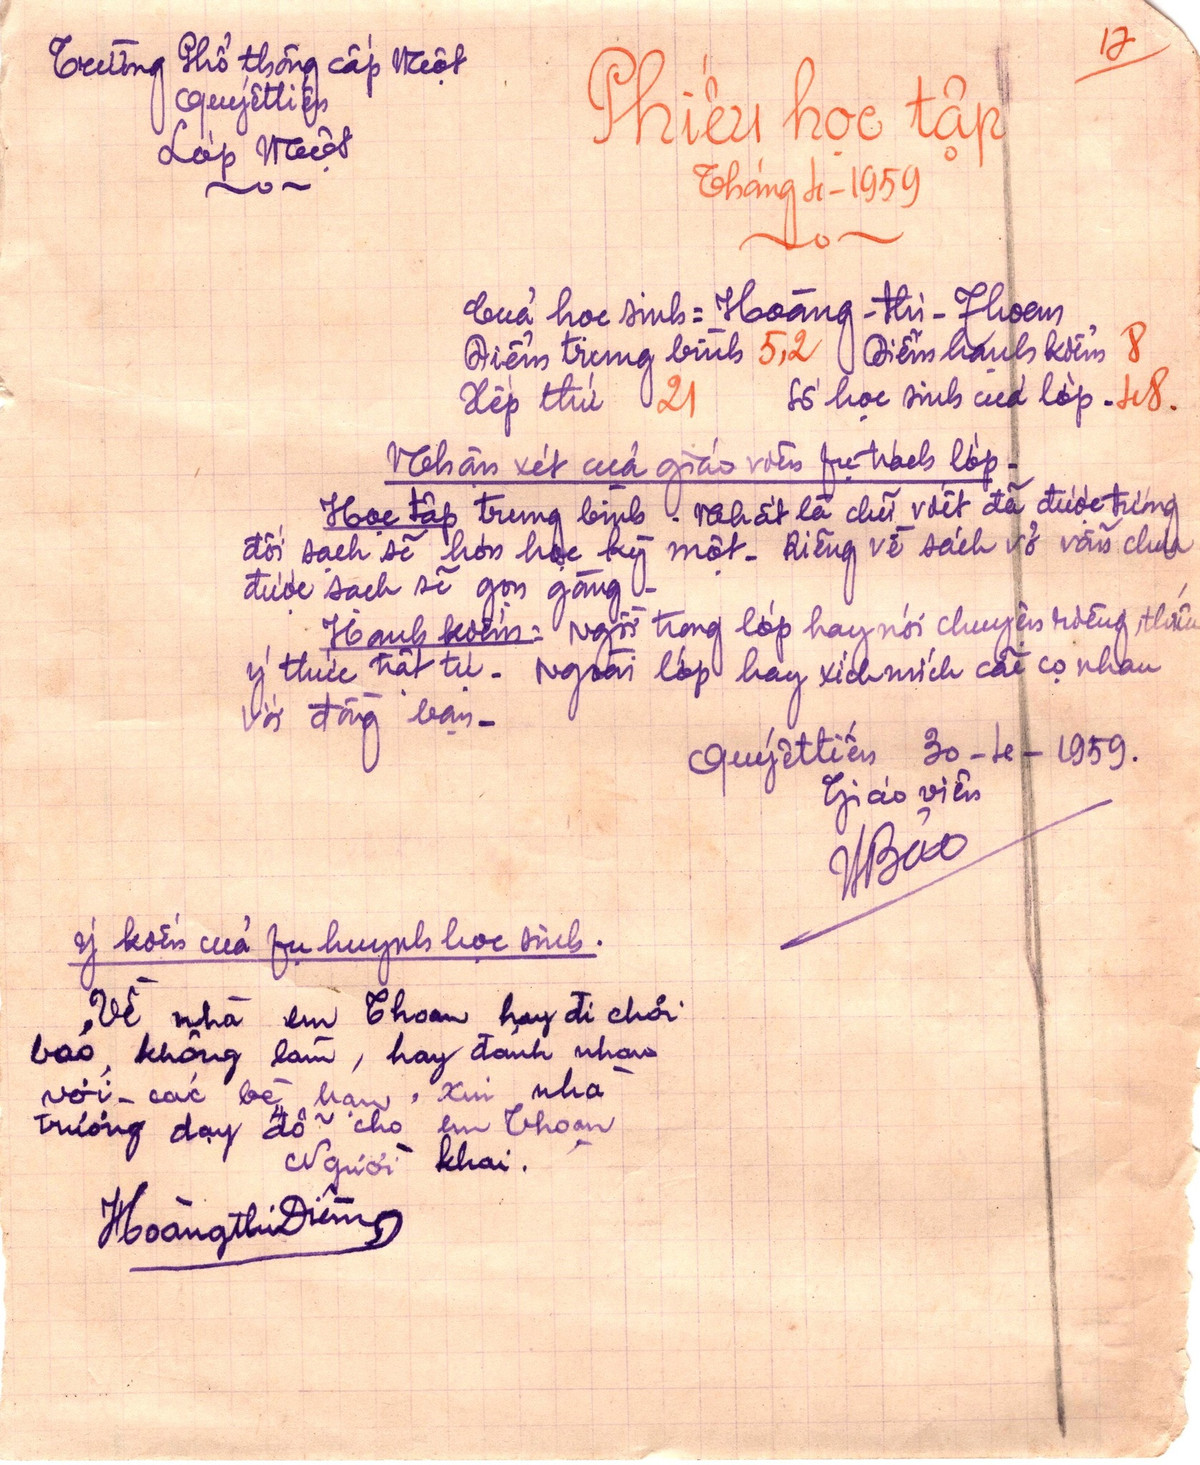 Trường Phổ thông cấp Một
Quyết tiến
Lớp Một
17
Phiếu học tập
Tháng 4-1959
Của học sinh = Hoàng-thị-Thoan
Điểm trung bình 5,2 Điểm hạnh kiểm 8
Xếp thứ 21 Số học sinh của lớp - 48.
Nhận xét của giáo viên fụ trách lớp -
Học tập trung bình - Nhất là chữ viết đã được tương
đối sạch sẽ hơn học kỳ một - Riêng về sách vở vẫn chưa
được sạch sẽ gọn gàng -
Hạnh kiểm = Ngồi trong lớp hay nói chuyện riêng, thiếu
ý thức trật tự - Ngoài lớp hay xích mích cãi cọ nhau
với đồng bạn -
Quyết tiến 30-4-1959.
Giáo viên
Bảo
Ý kiến của fụ huynh học sinh.
Về nhà em Thoan hay đi chơi
bảo, không làm, hay đánh nhau
với - các bè bạn, xin nhà
trường dạy dỗ cho em Thoan
Người khai.
Hoàng thị Diềm